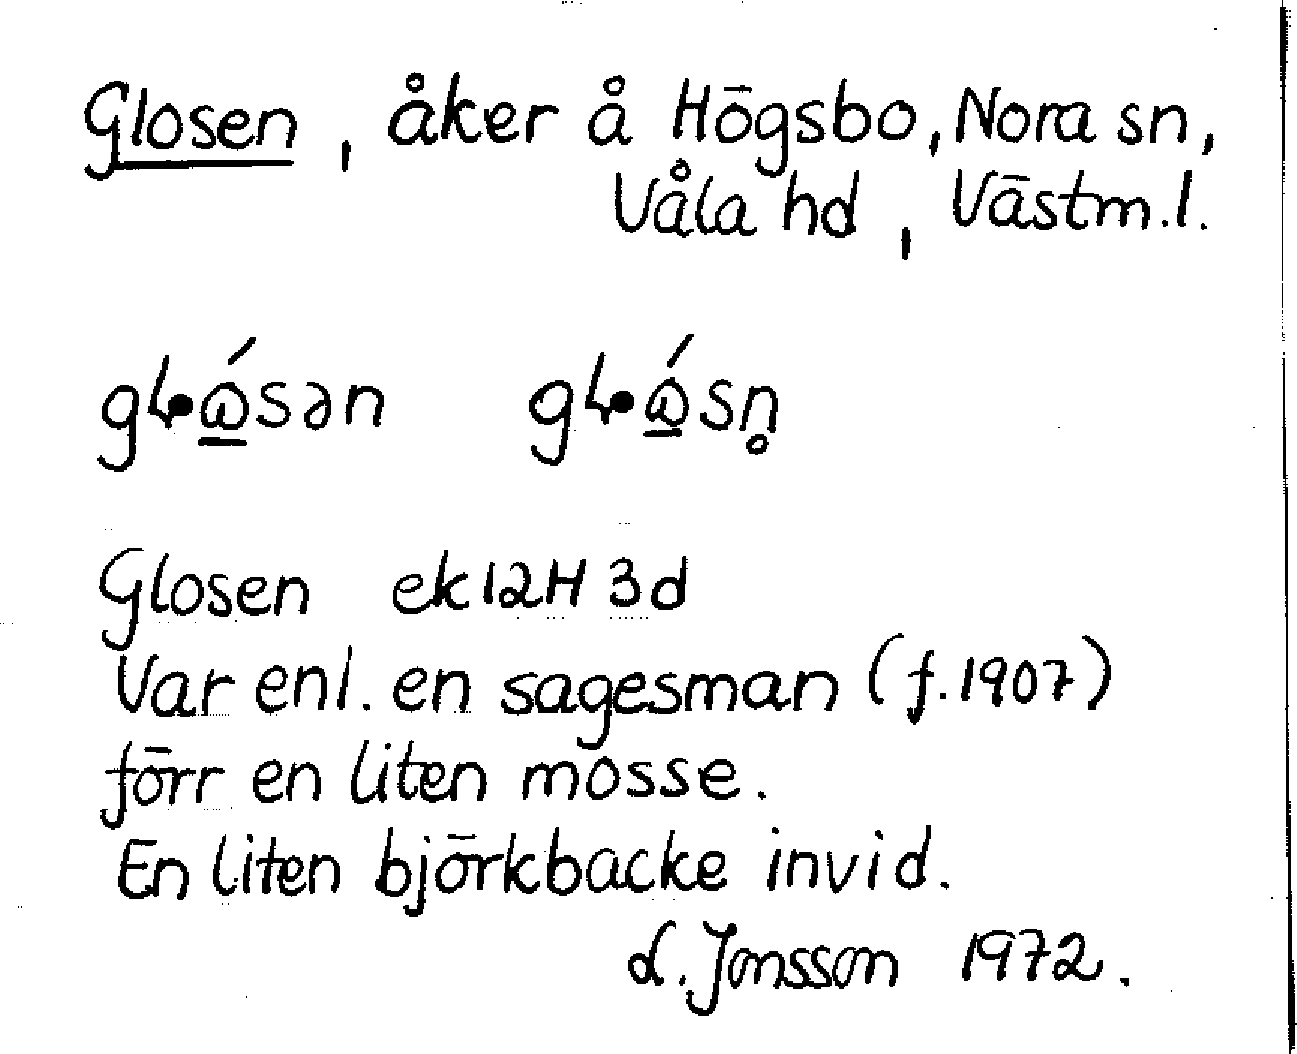 Glosen, åker å Högsbo, Nora sn,
Våla hd, Västm.l.
Glosen ek 12H 3d
Var enl. en sagesman (f. 1907)
förr en liten mosse.
En liten björkbacke invid.
L. Jonsson 1972.